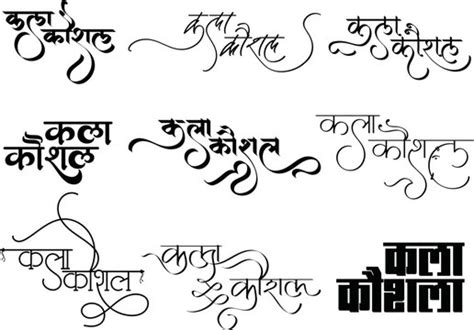 कला
कौशल
कला
कौशल
कला
कौशल
कला
कौशल
कला
कौशल
कला
कौशल
कला
कौशल
कला
कौशल
कला
कौशला